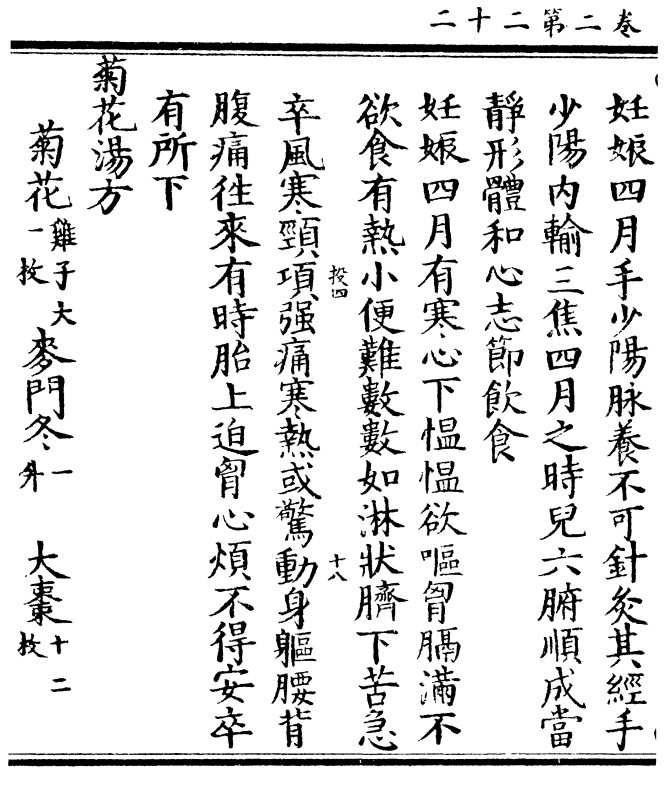 卷二第二十二
妊娠四月手少陽脉養不可針灸其經手
少陽内輸三焦四月之時兒六腑順成當
靜形體和心志節飲食
妊娠四月有寒心下愠愠欲嘔胷膈滿不
欲食有熱小便難數數如淋狀臍下苦急
四 十八
卒風寒頸項强痛寒熱或驚動身軀腰背
腹痛徃來有時胎上迫胷心煩不得安卒
有所下
菊花湯方
菊花雞子大一枚 麥門冬一升 大棗十二枚